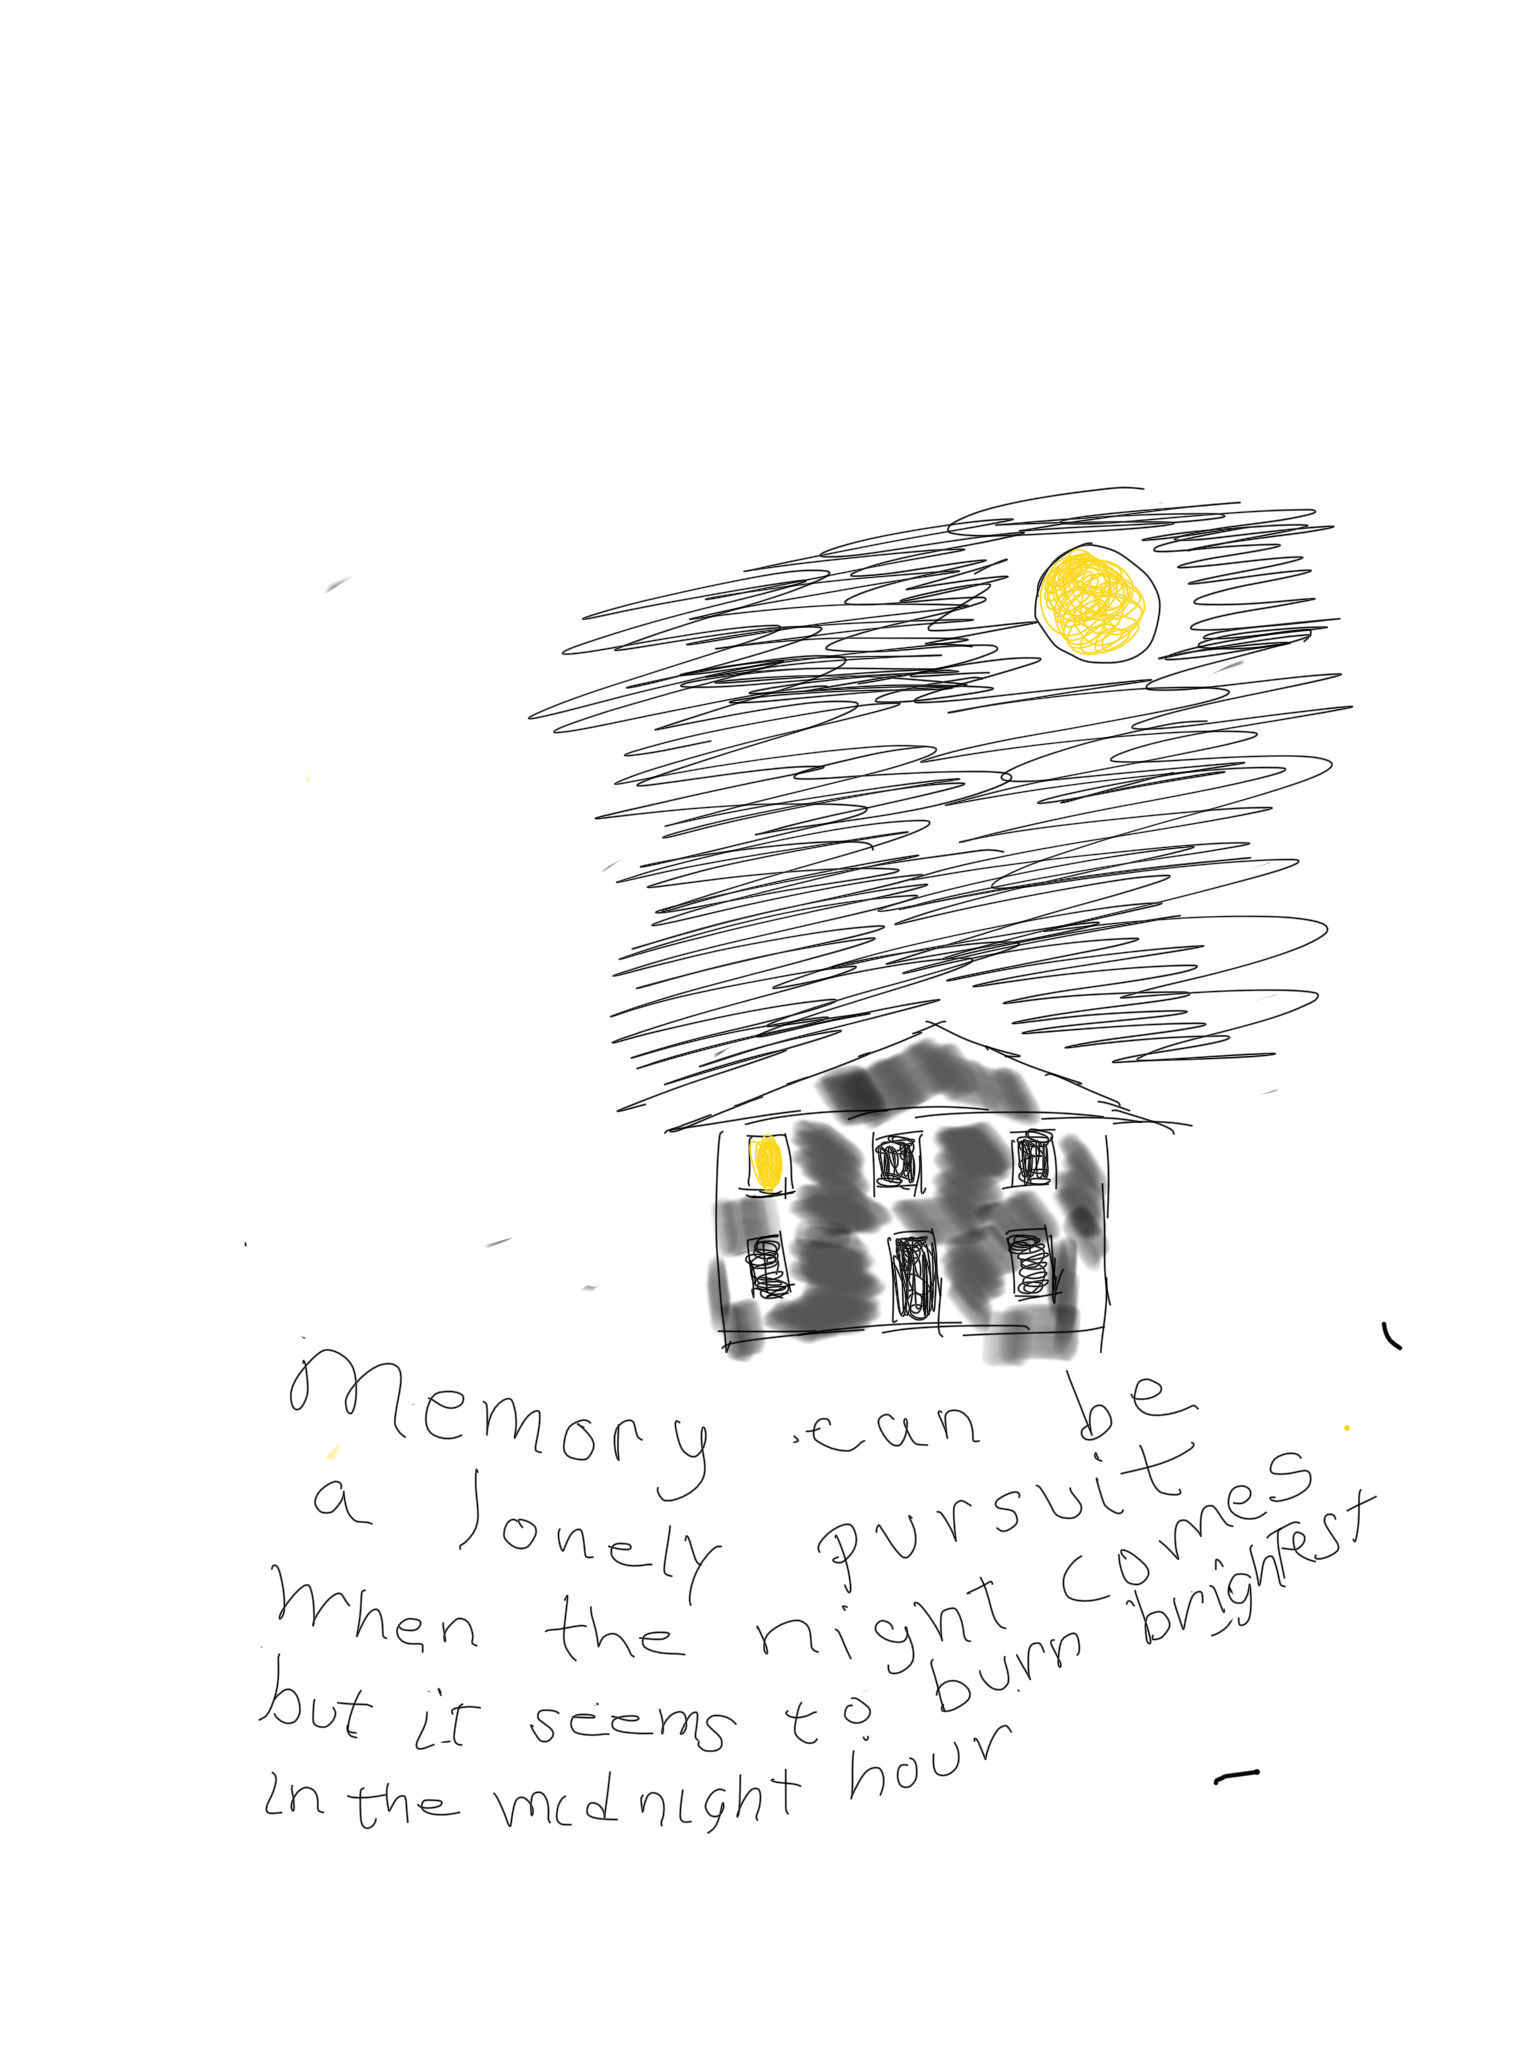 Memory can be
a lonely pursuit
When the night comes
but it seems to burn brightest
in the midnight hour